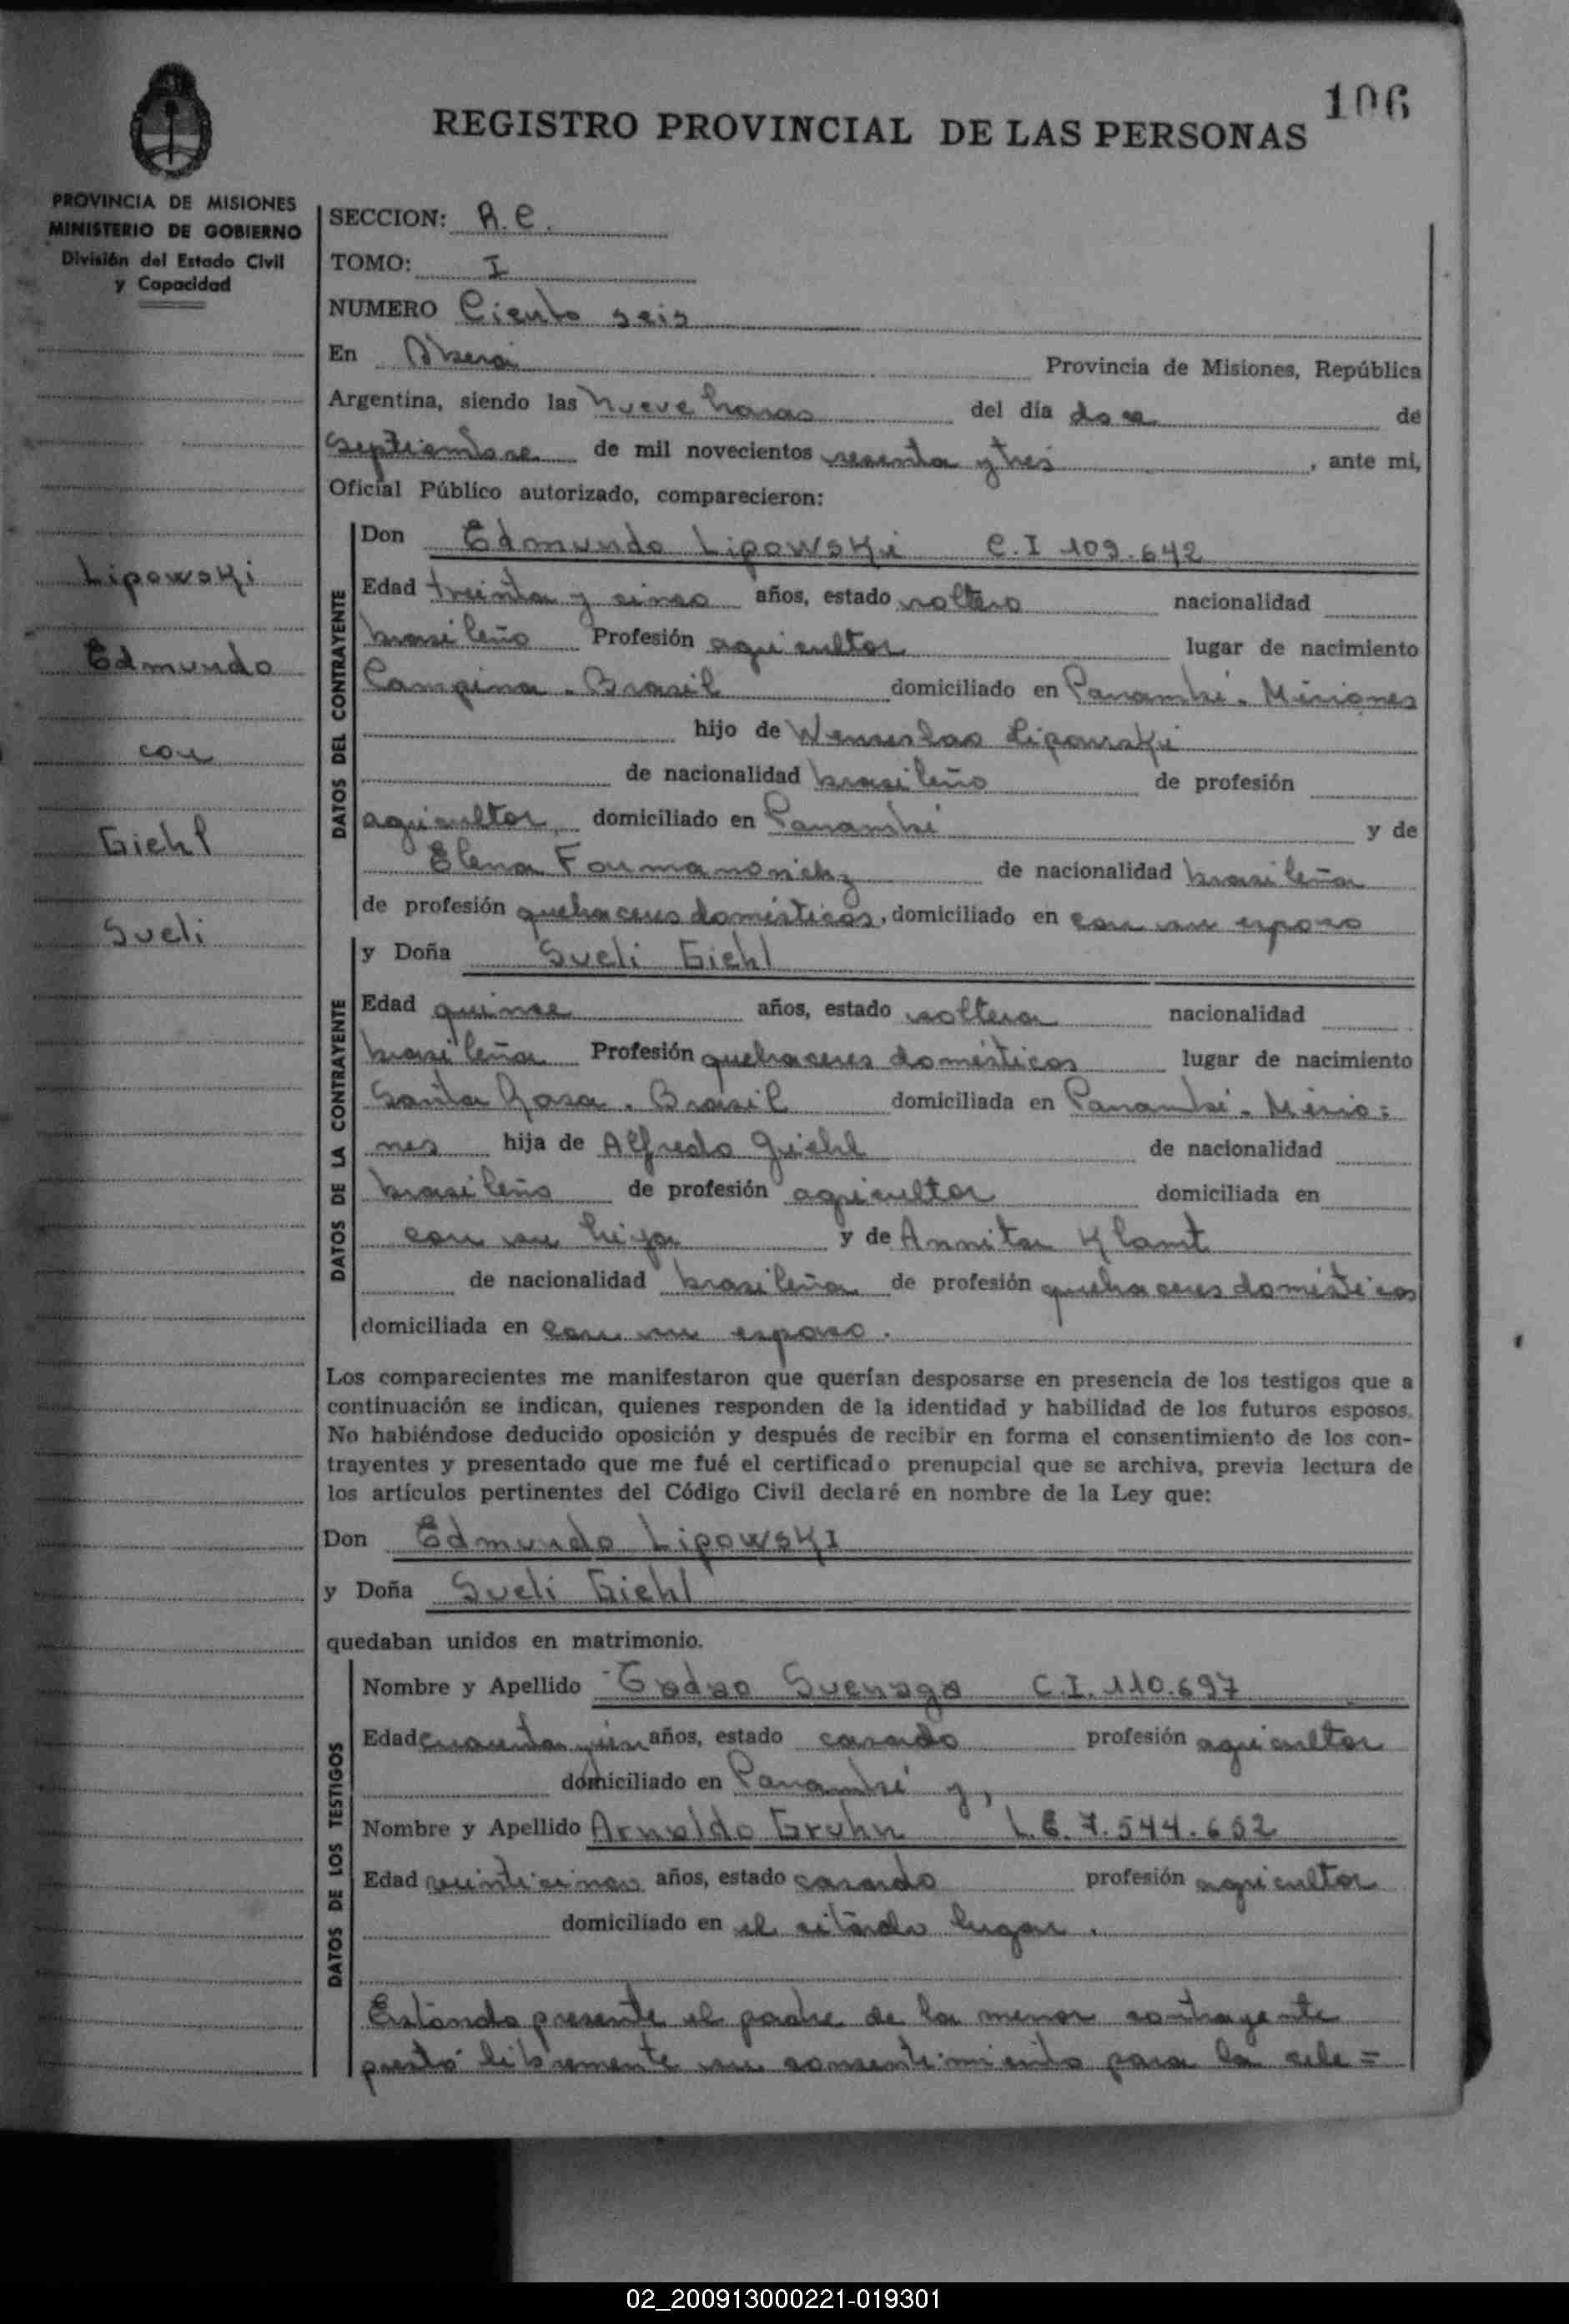 106
REGISTRO PROVINCIAL DE LAS PERSONAS
PROVINCIA DE MISIONES
MINISTERIO DE GOBIERNO
División del Estado Civil
y Capacidad
Lipowski
Edmundo
con
Giehl
Sueli
SECCION: R.C.
TOMO: I
NUMERO Ciento seis
En Oberá Provincia de Misiones, República
Argentina, siendo las nueve horas del día doce de
septiembre de mil novecientos sesenta y tres, ante mi,
Oficial Público autorizado, comparecieron:
DATOS DEL CONTRAYENTE
Don Edmundo Lipowski C.I 109.642
Edad treinta y cinco años, estado soltero nacionalidad
brasileño Profesión agricultor lugar de nacimiento
Campina. Brasil domiciliado en Panambí. Misiones
hijo de Wenseslao Lipowski
de nacionalidad brasileño de profesión
agricultor, domiciliado en Panambí y de
Elena de nacionalidad brasileña
de profesión quehaceres domésticos, domiciliado en con su esposo
DATOS DE LA CONTRAYENTE
y Doña Sueli Giehl
Edad quince años, estado soltera nacionalidad
brasileña Profesión quehaceres domésticos lugar de nacimiento
Santa Rosa. Brasil domiciliada en Panambí. Misio=
nes hija de Alfredo Giehl de nacionalidad
brasileño de profesión agricultor domiciliada en
con su hija y de Annita Klamt
de nacionalidad brasileña de profesión quehaceres domésticos
domiciliada en con su esposo.
Los comparecientes me manifestaron que querían desposarse en presencia de los testigos que a
continuación se indican, quienes responden de la identidad y habilidad de los futuros esposos.
No habiéndose deducido oposición y después de recibir en forma el consentimiento de los con-
trayentes y presentado que me fué el certificado prenupcial que se archiva, previa lectura de
los artículos pertinentes del Código Civil declaré en nombre de la Ley que:
Don Edmundo Lipowski
y Doña Sueli Giehl
quedaban unidos en matrimonio.
DATOS DE LOS TESTIGOS
Nombre y Apellido Suenaga C.I. 110.697
Edad cuarenta y un años, estado casado profesión agricultor
domiciliado en Panambí y,
Nombre y Apellido Arnoldo Gruhn L.E. 7.544.652
Edad veinticinco años, estado casado profesión agricultor
domiciliado en el citado lugar.
Estando presente el padre de la menor contrayente
prestó libremente su consentimiento para la cele=
02_200913000221-019301